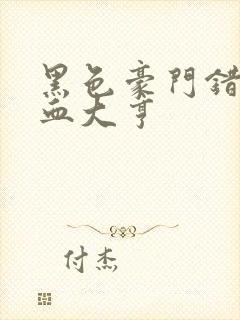 黑色豪門錯
血大亨
付杰